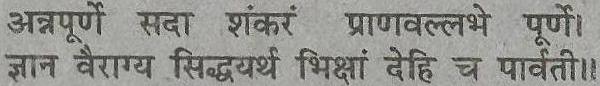 अन्नपूर्णे सदा शंकरं प्राणवल्लभे पूर्णे।
ज्ञान वैराग्य सिद्धयर्थ भिक्षां देहि च पार्वती॥